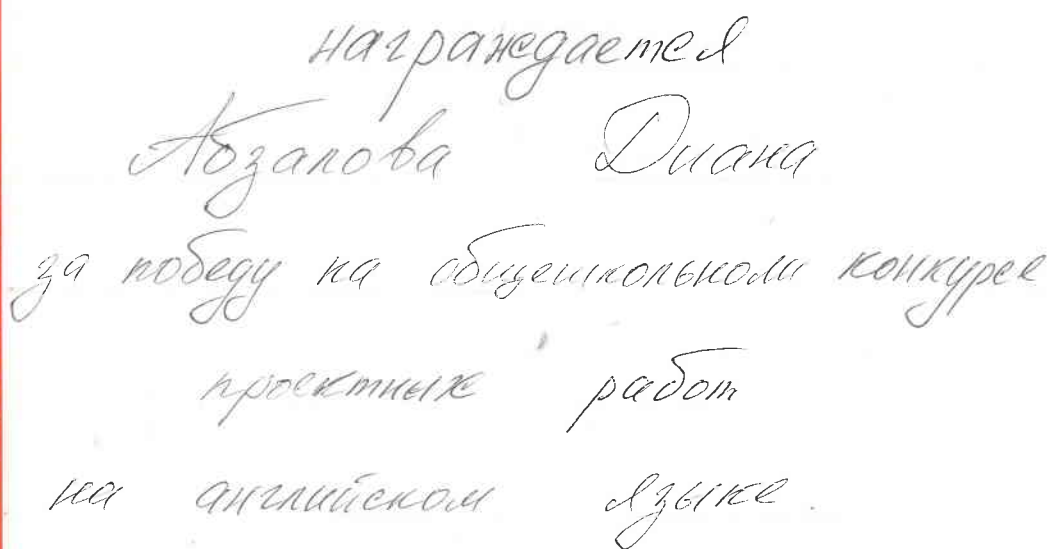 награждается
Абзалова Диана
за победу на общешкольном конкурсе
проектных работ
на английском языке.